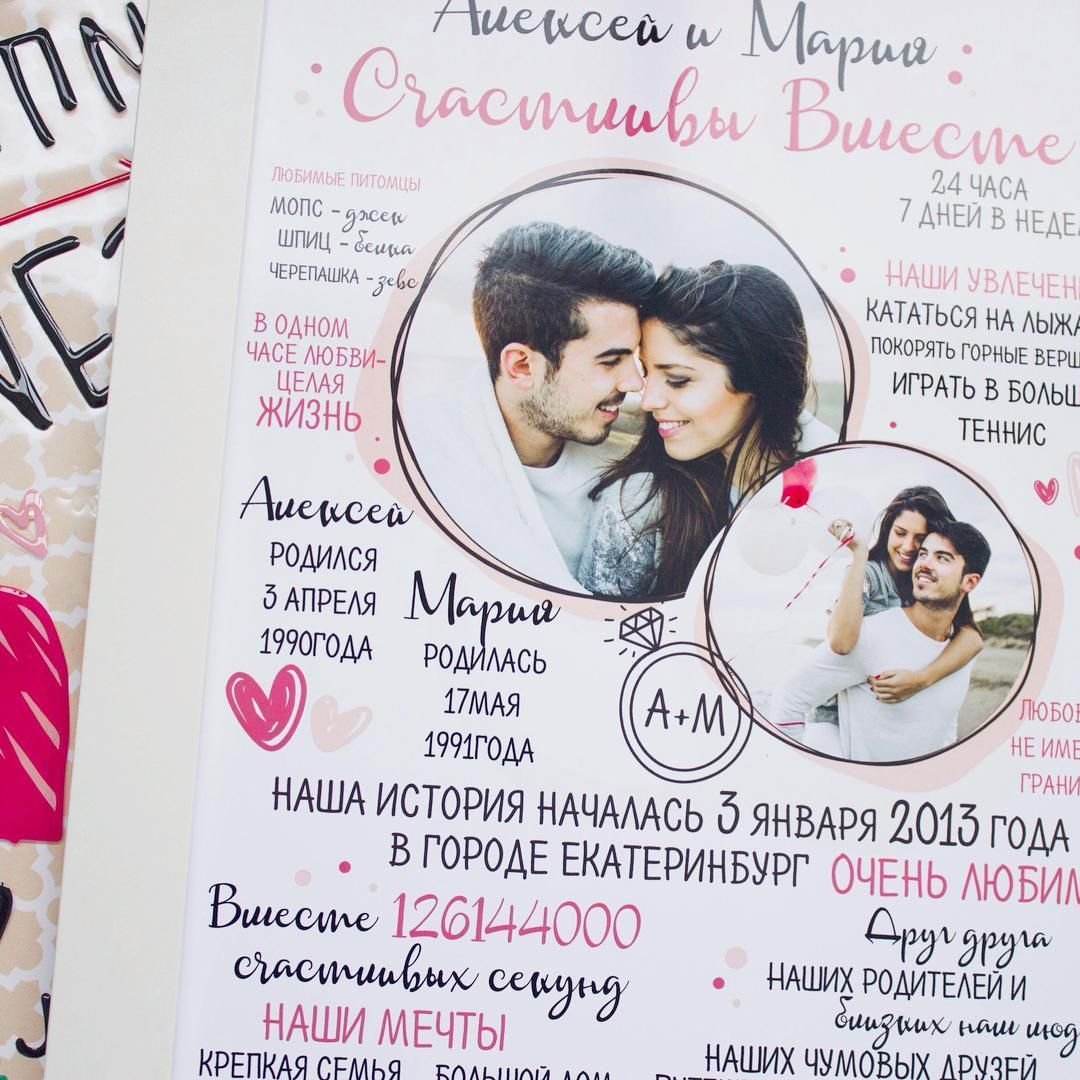 Алексей и Мария
Счастливы Вместе
24 ЧАСА
7 ДНЕЙ В НЕДЕ
ЛЮБИМЫЕ ПИТОМЦЫ
МОПС - джек
ШПИЦ - белка
ЧЕРЕПАШКА - зевс
В ОДНОМ
ЧАСЕ ЛЮБВИ-
ЦЕЛАЯ
ЖИЗНЬ
НАШИ УВЛЕЧЕН
КАТАТЬСЯ НА ЛЫЖА
ПОКОРЯТЬ ГОРНЫЕ ВЕРШ
ИГРАТЬ В БОЛЬШ
ТЕННИС
Алексей
РОДИЛСЯ
3 АПРЕЛЯ
1990ГОДА
Мария
РОДИЛАСЬ
17МАЯ
1991ГОДА
А+М
ЛЮБОВ
НЕ ИМЕ
ГРАНИ
НАША ИСТОРИЯ НАЧАЛАСЬ 3 ЯНВАРЯ 2013 ГОДА
В ГОРОДЕ ЕКАТЕРИНБУРГ
ОЧЕНЬ ЛЮБИМ
Вместе 126144000
счастливых секунд
НАШИ МЕЧТЫ
КРЕПКАЯ СЕМЬЯ БОЛЬШОЙ ДОМ
Друг друга
НАШИХ РОДИТЕЛЕЙ И
близких нам люд
НАШИХ ЧУМОВЫХ ДРУЗЕЙ